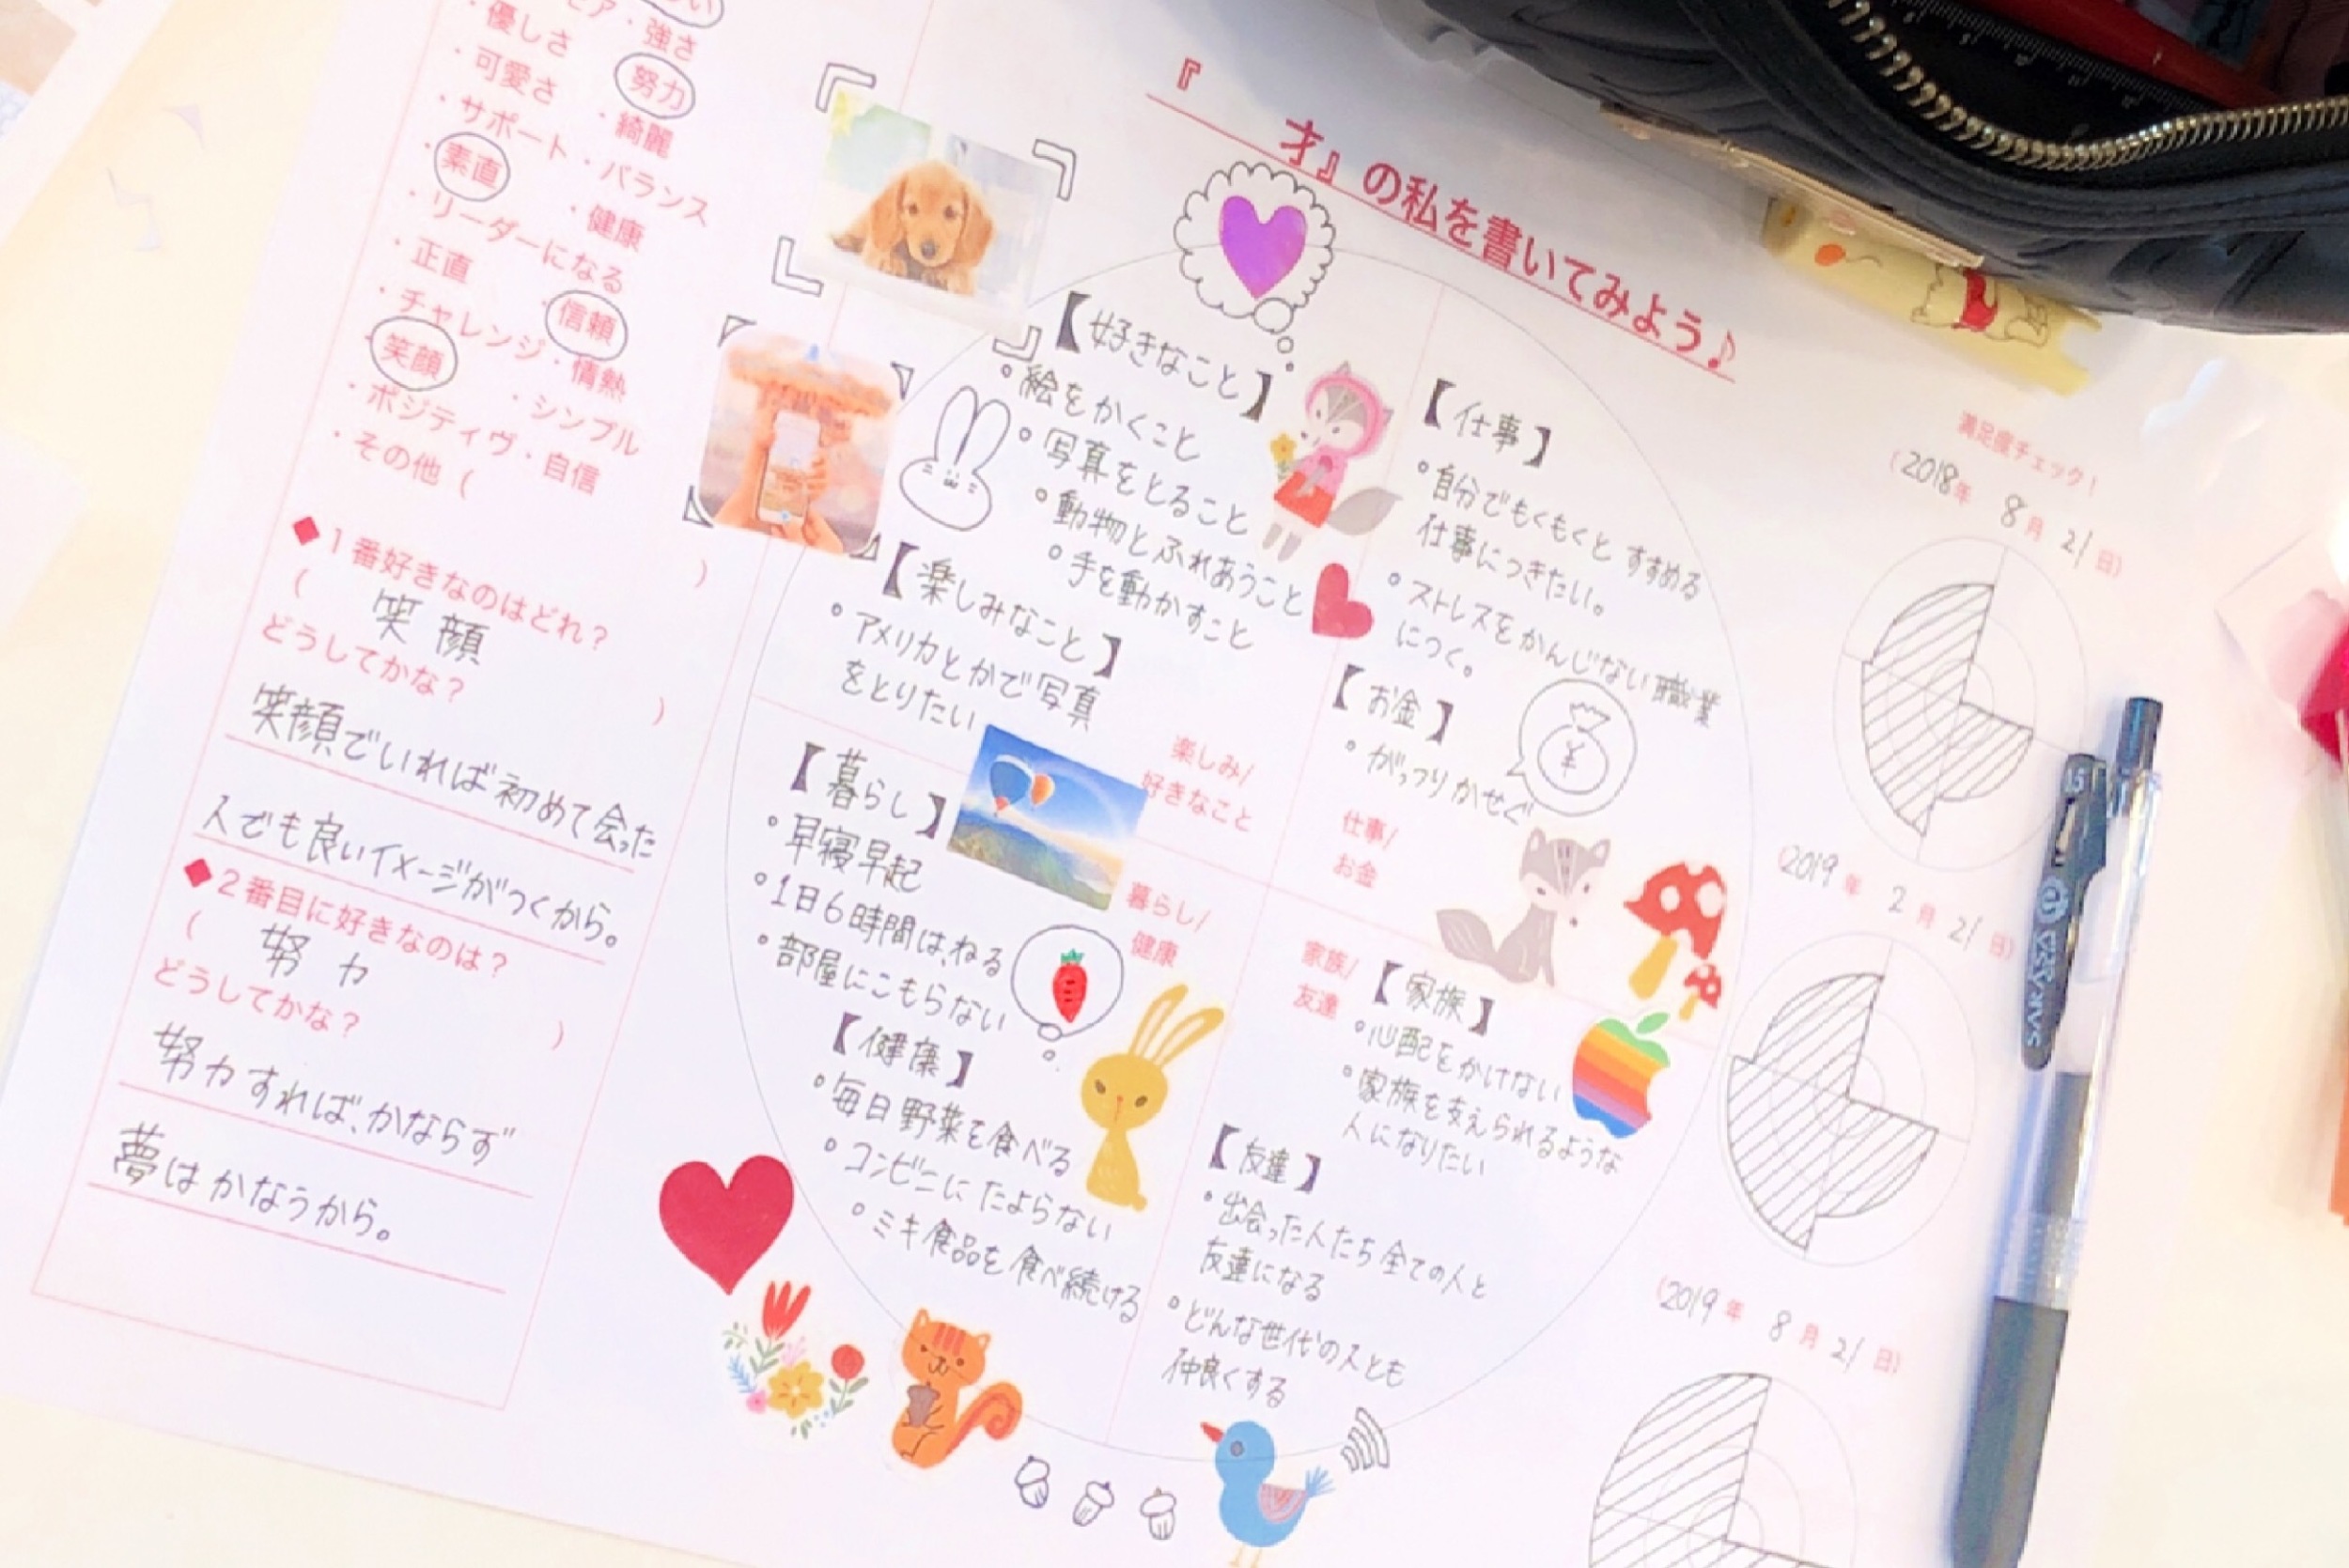 ・優しさ
・強さ
・可愛さ
努力
・サポート
・綺麗
・素直
・バランス
・リーダーになる
・健康
・正直
・チャレンジ
信頼
・笑顔
・情熱
・ポジティヴ
・シンプル
・その他（
・自信
）
◆1番好きなのはどれ？
（ 笑顔 ）
どうしてかな？
笑顔でいれば初めて会った
人でも良いイメージがつくから。
◆2番目に好きなのは？
（ 努力 ）
どうしてかな？
努力すれば、かならず
夢はかなうから。
『 才』の私を書いてみよう♪
【好きなこと】
・絵をかくこと
・写真をとること
・動物とふれあうこと
・手を動かすこと
【楽しみなこと】
・アメリカとかで写真
をとりたい
楽しみ/
好きなこと
【仕事】
・自分でもくもくとすすめる
仕事につきたい。
・ストレスをかんじない職業
につく。
【お金】
・がっつりかせぐ
¥
仕事/
お金
【暮らし】
・早寝早起
・1日6時間は、ねる
・部屋にこもらない
暮らし/
健康
【健康】
・毎日野菜を食べる
・コンビニにたよらない
・ミキ食品を食べ続ける
家族/
友達
【家族】
・心配をかけない
・家族を支えられるような
人になりたい
【友達】
・出会った人たち全ての人と
友達になる
・どんな世代の人とも
仲良くする
満足度チェック！
（2018年 8月 21日）
（2019年 2月 21日）
（2019年 8月 21日）
SAKURA